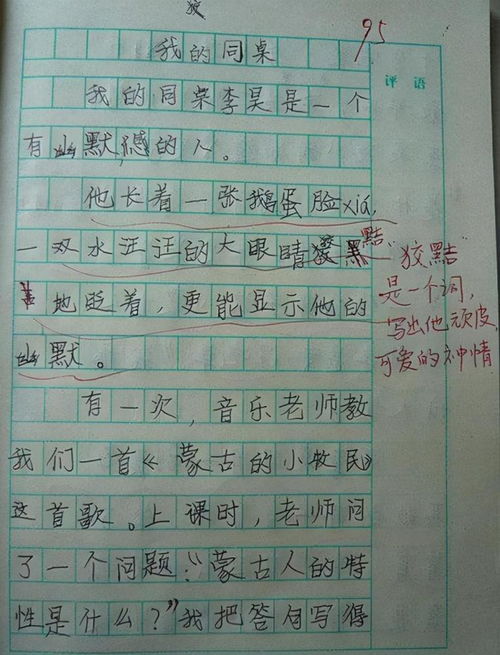 狡
95
我的同桌
评语
我的同桌李昊是一个
有幽默感的人。
他长着一张鹅蛋脸xiá,
一双水汪汪的大眼睛狡黠
地眨着，更能显示他的
幽默。
狡黠
是一个词，
写出他顽皮
可爱的神情
有一次，音乐老师教
我们一首《蒙古的小牧民》
这首歌。上课时，老师问
了一个问题：“蒙古人的特
性是什么？”我把答句写得